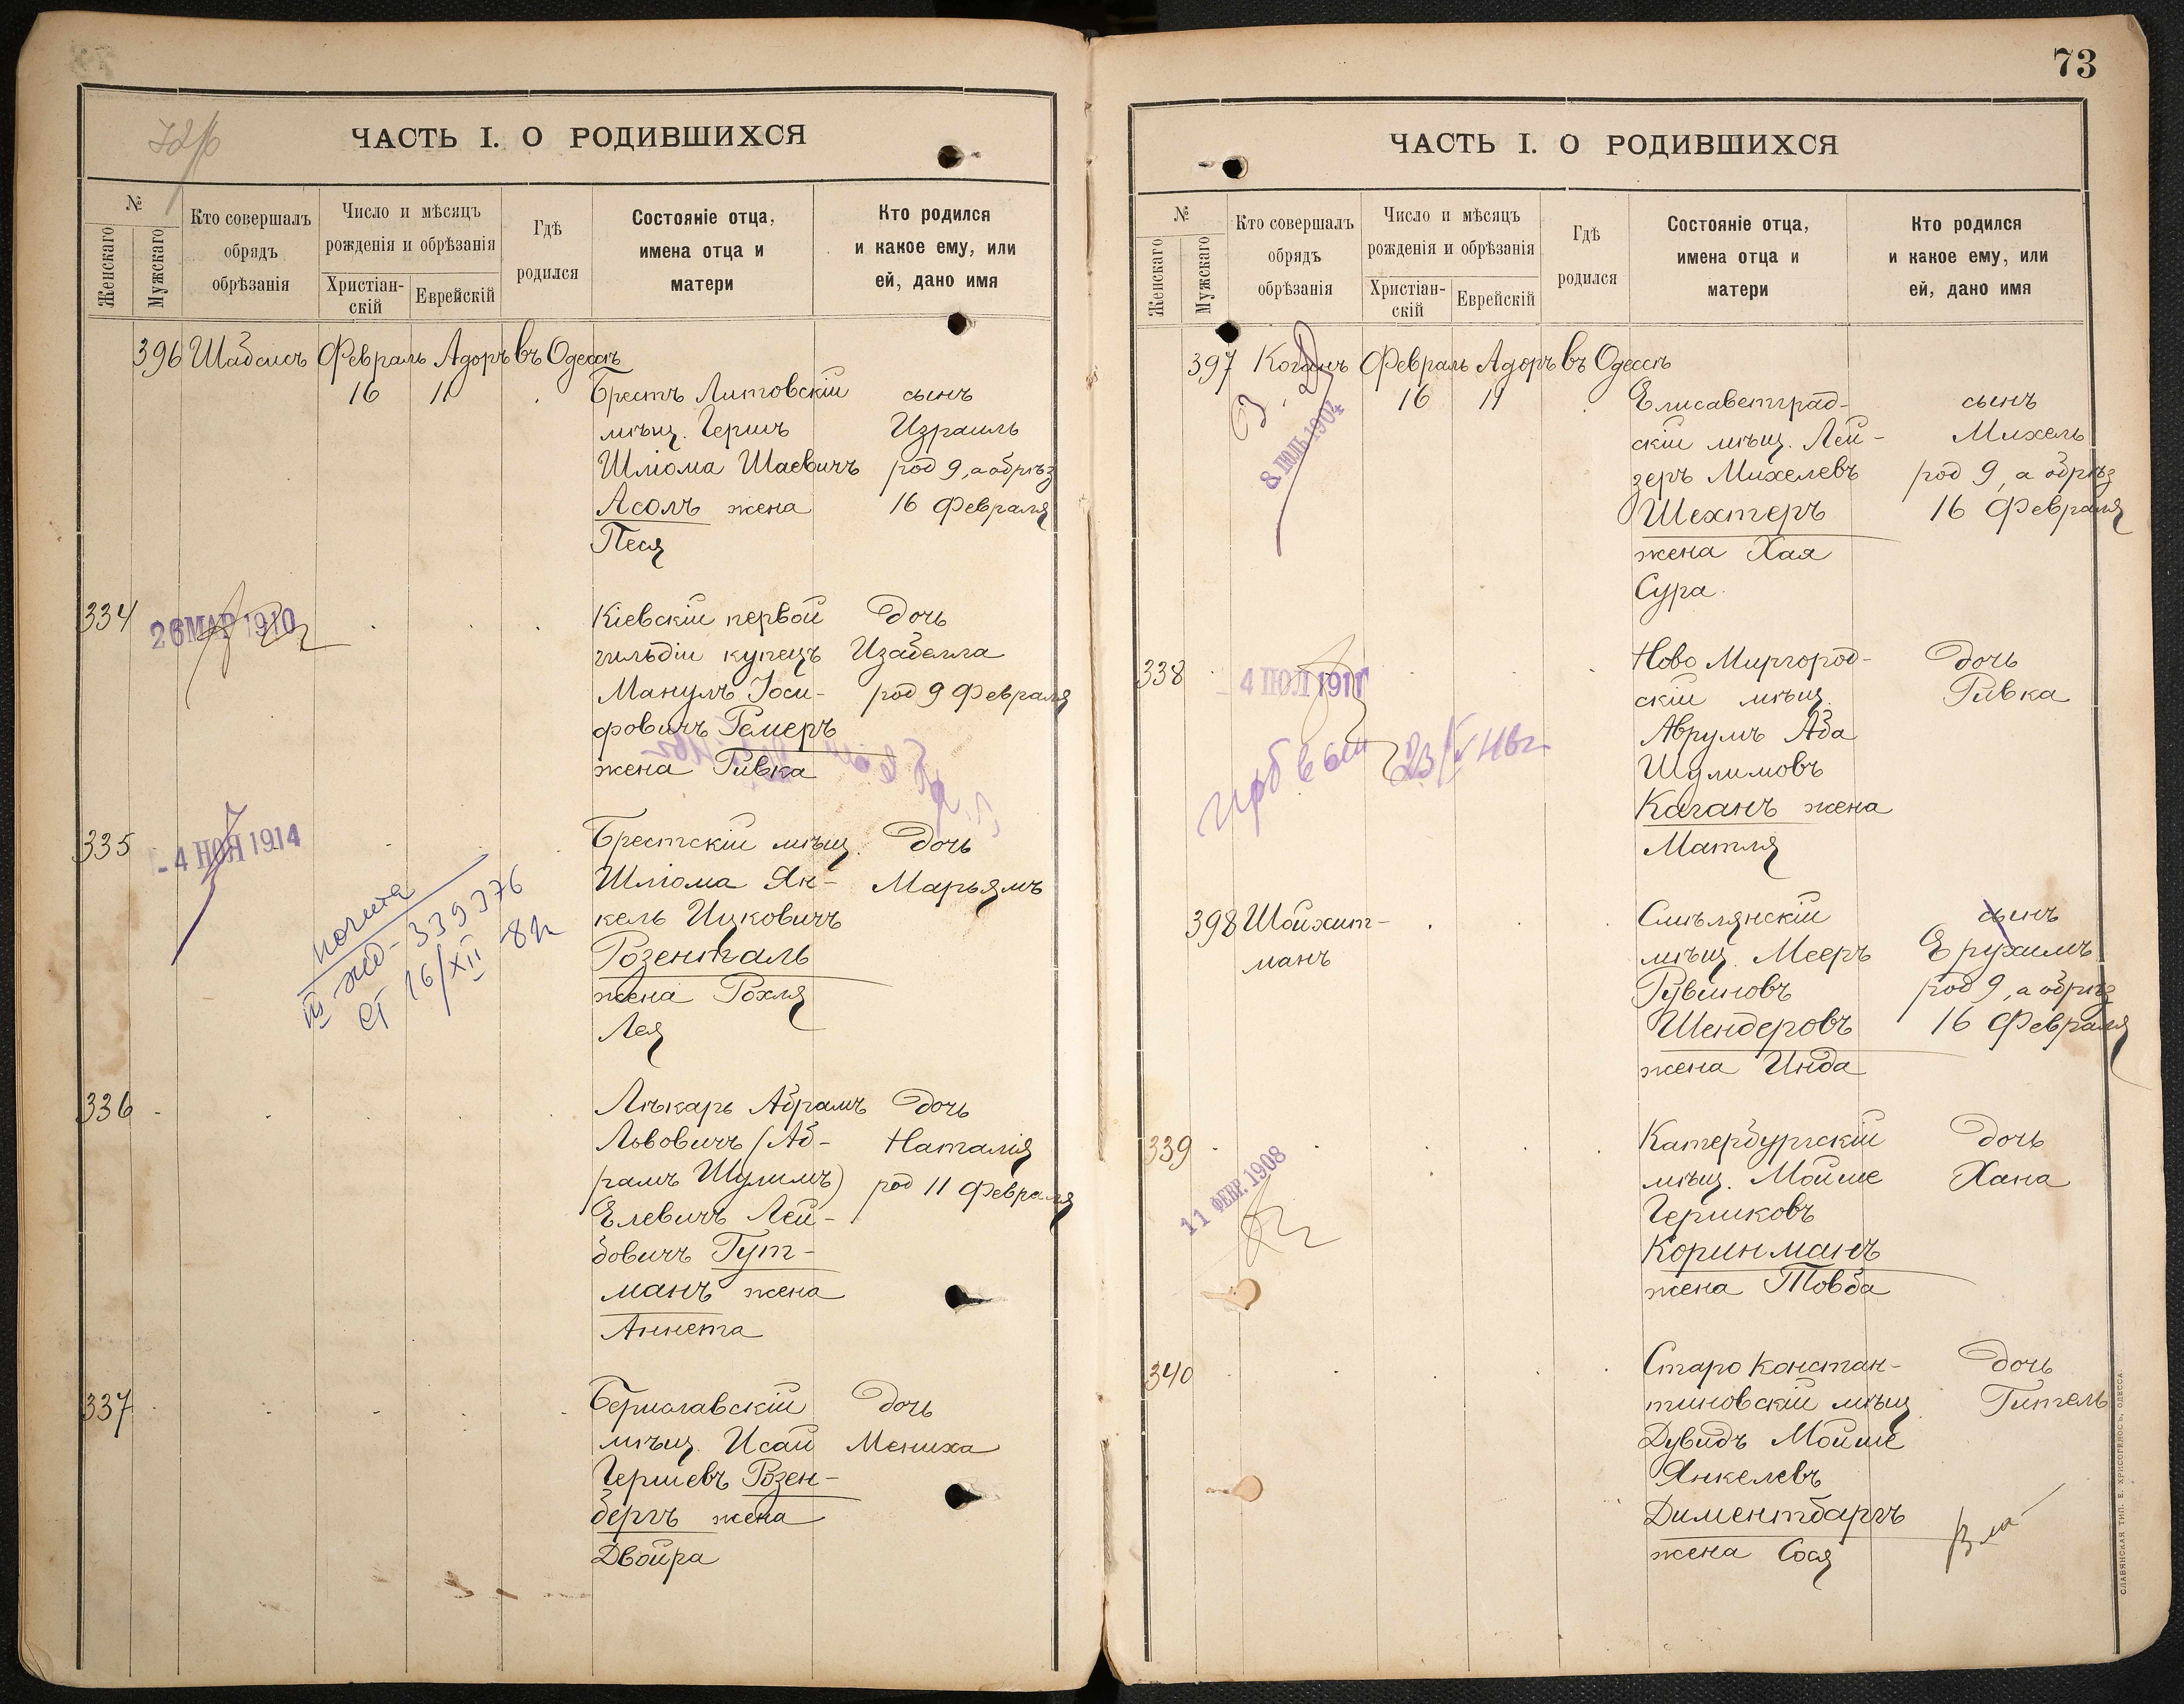 ЧАСТЬ I. О РОДИВШИХСЯ
№
Женскаго
Мужскаго
Кто совершалъ
обрядъ
обрѣзанія
Число и мѣсяцъ
рожденія и обрѣзанія
Христіан-
скій
Еврейскій
Гдѣ
родился
Состояніе отца,
имена отца и
матери
Кто родился
и какое ему, или
ей, дано имя
396 Шабсисъ Февраль Адоръ въ Одессѣ
16 11 Брестъ Литовскій сынъ
мѣщ. Гершъ Израиль
Шліома Шаевичъ род 9, а обрѣз
Асолъ жена 16 Февраля
Песя
334 26 МАР 1910 Кіевскій первой дочь
гильдіи купецъ Изабелла
Манулъ Іоси- род 9 Февраля
фовичъ Гемеръ
жена Ривка
335 -4 НОЯ 1914 Брестскій мѣщ. дочь
Шліома Ян- Марьямъ
кель Ицковичъ
Розенталь
жена Рохля
Лея
339376
16/XII
336 Лѣкарь Абрамъ дочь
Львовичъ (Аб- Наталія
рамъ Шулимъ) род 11 Февраля
Елевичъ Лей-
бовичъ Гут-
манъ жена
Аннета
337 Бериславскій дочь
мѣщ. Исай Мениха
Гершевъ Розен-
бергъ жена
Двойра
73
ЧАСТЬ I. О РОДИВШИХСЯ
№
Женскаго
Мужскаго
Кто совершалъ
обрядъ
обрѣзанія
Число и мѣсяцъ
рожденія и обрѣзанія
Христіан-
скій
Еврейскій
Гдѣ
родился
Состояніе отца,
имена отца и
матери
Кто родился
и какое ему, или
ей, дано имя
397 Коганъ Февраль Адоръ въ Одессѣ
16 11 Елисаветград- сынъ
8 ІЮЛЬ 1904
скій мѣщ. Лей- Михель
зеръ Михелевъ род 9, а обрѣз
Шехтеръ 16 Февраля
жена Хая
Сура
338 4 ІЮЛ 1911 Ново Миргород- дочь
скій мѣщ. Ривка
Аврумъ Аба
Шулимовъ
Каганъ жена
Матля
398 Шойхит- Смѣлянскій сынъ
манъ мѣщ. Мееръ Ерухимъ
Рувиновъ род 9, а обрѣз
Шендеровъ 16 Февраля
жена Инда
339 Катербургскій дочь
11 ФЕВР. 1908
мѣщ. Мойше Хана
Гершковъ
Коринманъ
жена Товба
340 Старо констан- дочь
тиновскій мѣщ. Гитель
Дувидъ Мойше
Янкелевъ
Диментбаргъ
жена Сося
СЛАВЯНСКАЯ ТИП. Е. ХРИСОГЕЛОСЪ, ОДЕССА.